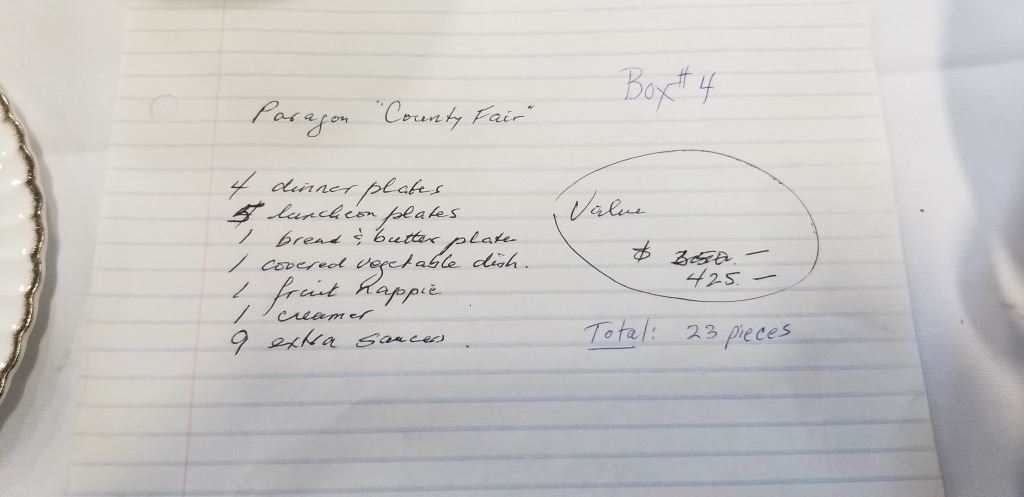 Box #4
Paragon "County Fair"
4 dinner plates
luncheon plates
1 bread & butter plate
1 covered vegetable dish.
1 fruit nappie
1 creamer
9 extra saucers.
Value
$ 350. —
425. —
Total: 23 pieces